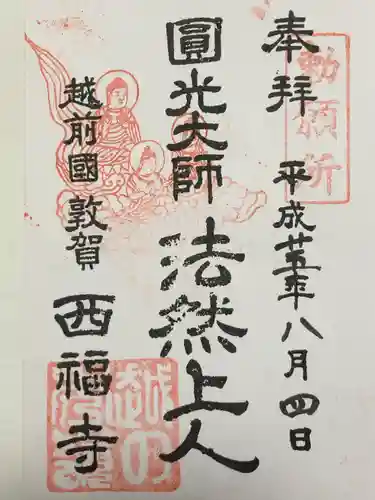 奉拝
勅願所
平成廿五年八月四日
圓光大師
法然上人
越前國敦賀
西福寺